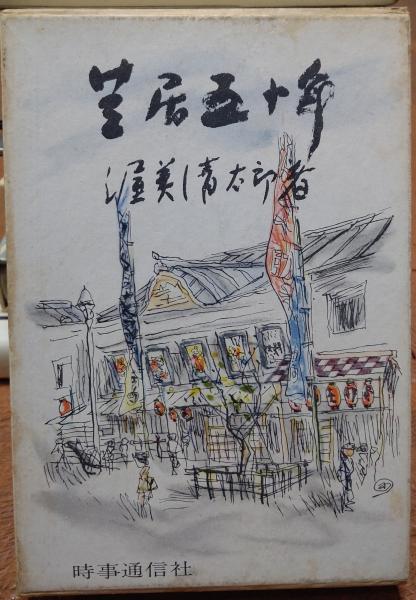 芝居五十年
渥美清太郎著
時事通信社